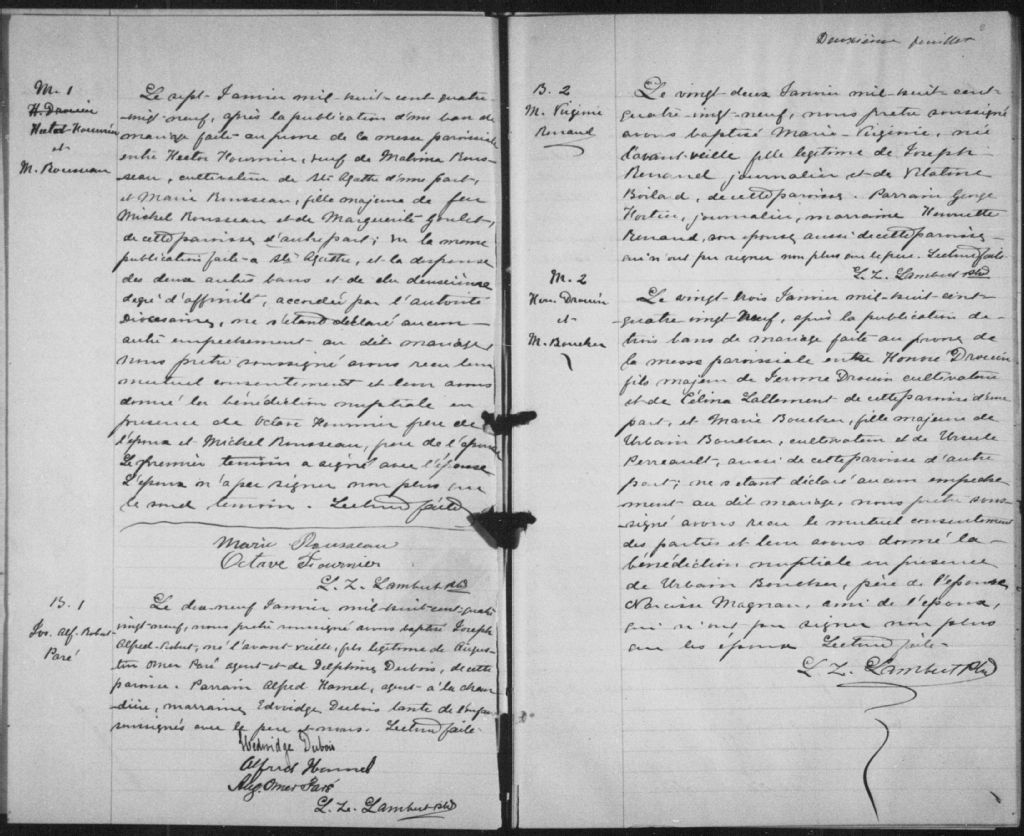 M. 1
H. Drouin
Hector Fournier
et
M. Rousseau
Le sept Janvier mil-huit-cent-quatre-
vingt-neuf, après la publication d'un ban de
mariage faite au prone de la messe paroissiale
entre Hector Fournier, veuf de Malvina Rous-
seau, cultivateur de Ste Agathe d'une part,
et Marie Rousseau, fille majeure de feu
Michel Rousseau et de Marguerite Goulet,
de cette paroisse d'autre part; vu la meme
publication faite a Ste Agathe, et la dispense
des deux autres bans et de du deuxième
degré d'affinité, accordée par l'autorité
Diocesaine, ne s'etant déclaré aucun
autre empechement au dit mariage,
nous pretre soussigné avons recu leur
mutuel consentement et leur avons
donné la bénédiction nuptiale en
presence de Octave Fournier père de
l'époux et Michel Rousseau, père de l'épouse
Le premier temoin a signé avec l'épouse
L'époux n'a pu signer non plus que
le second temoin. Lecture faite
Marie Rousseau
Octave Fournier
L. Z. Lambert Ptre
B. 1
Jos. Alf. Robert
Paré
Le dix-neuf Janvier mil-huit-cent-quatre
vingt-neuf, nous pretre soussigné avons baptisé Joseph
Alfred-Robert, né l'avant veille, fils legitime de Augus-
tin Omer Paré agent et de Delphine Dubois, de cette
paroisse. Parrain Alfred Hamel, agent à la chau
dière, marraine Edwidge Dubois tante de l'enfant
soussignés avec le pere et nous. Lecture faite
Hedwidge Dubois
Alfred Hamel
Aug. Omer Paré
L. Z. Lambert Ptre
Deuxième feuillet
B. 2
M. Virginie
Renaud
Le vingt-deux Janvier mil-huit-cent-
quatre-vingt-neuf, nous pretre soussigné
avons baptisé Marie-Virginie, née
l'avant-veille fille legitime de Joseph
Renaud journalier et de Vitaline
Boilard, de cette paroisse. Parrain George
Fortier, journalier, marraine Henriette
Renaud, son epouse aussi de cette paroisse
qui n'ont pu signer non plus que le pere. Lecture faite
L. Z. Lambert Ptre
M. 2
Hon. Drouin
et
M. Boucher
Le vingt trois Janvier mil-huit-cent-
quatre vingt Neuf, après la publication de
trois bans de mariage faite au prone de
la messe paroissiale entre Honoré Drouin
fils majeur de Jerome Drouin cultivateur
et de Célina Lallement de cette paroisse d'une
part, et Marie Boucher, fille majeure de
Urbain Boucher, cultivateur et de Ursule
Perreault, aussi de cette paroisse d'autre
part; ne s'etant déclaré aucun empeche
ment au dit mariage, nous pretre sous-
signé avons recu le mutuel consentement
des parties et leur avons donné la
bénédiction nuptiale en presence
de Urbain Boucher, père de l'epouse
Narcisse Magnan, ami de l'epoux,
qui n'ont pu signer non plus
que les epoux Lecture faite
L. Z. Lambert Ptre